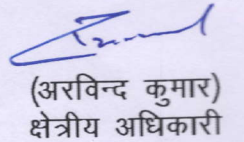 (अरविन्द कुमार)
क्षेत्रीय अधिकारी